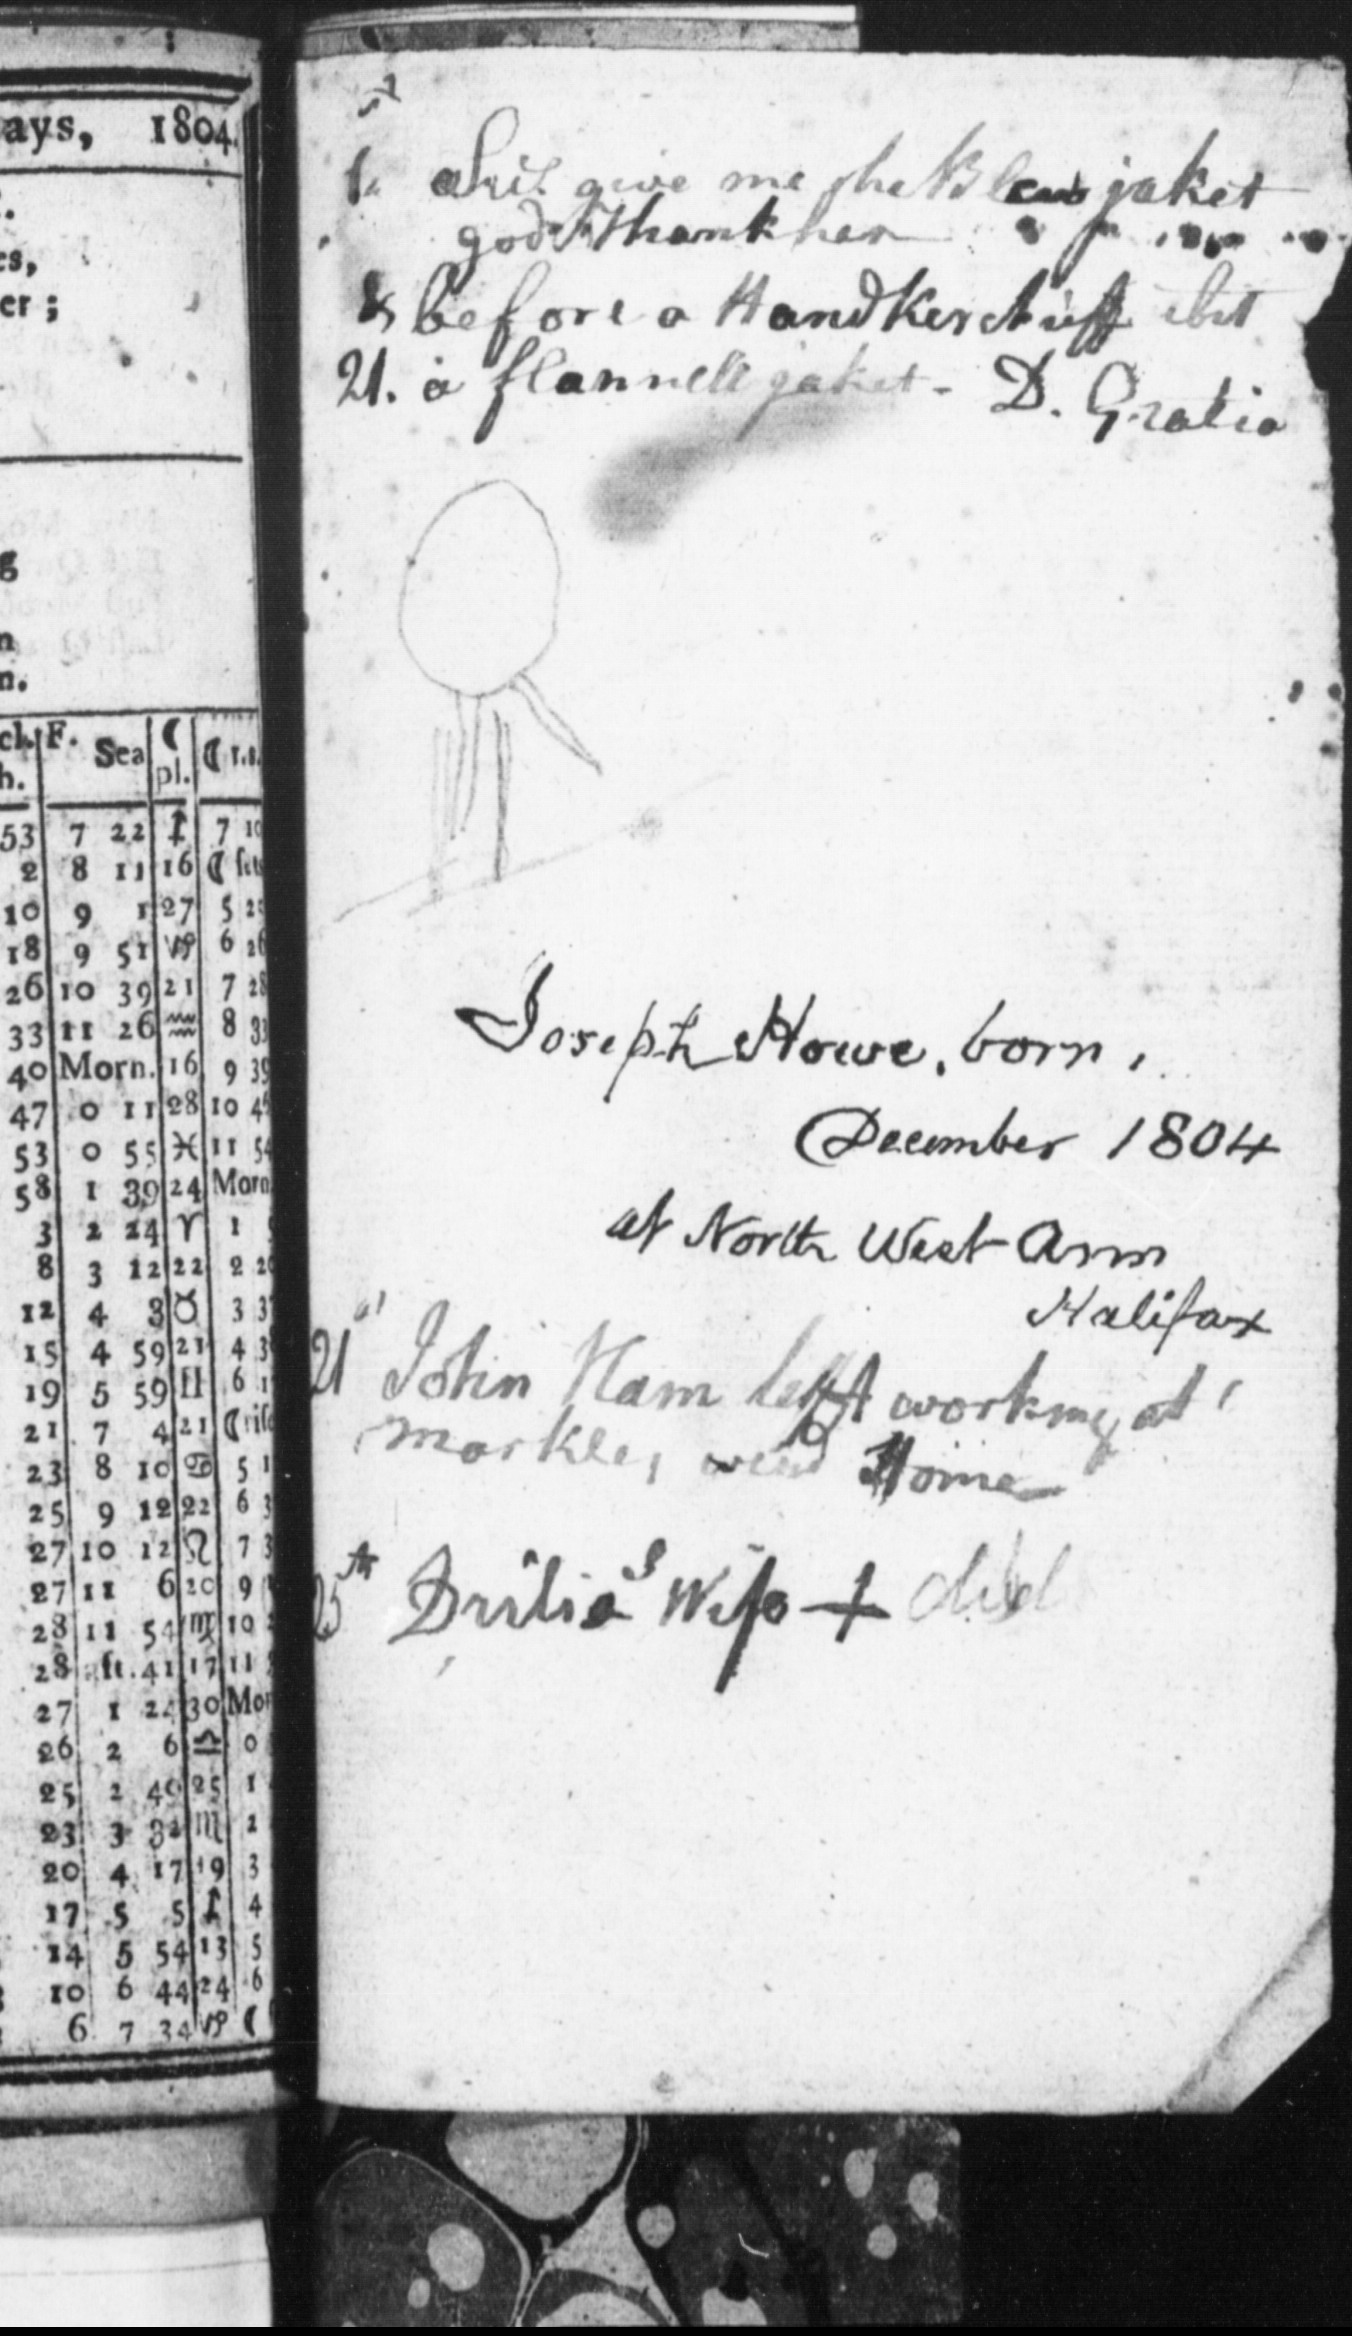 ays, 1804.
s,
er ;
g
n
n.
ch. F. Sea ☾ ☾ r.s.
h. pl.
53 7 22 ♐ 7 10
2 8 11 16 ☾ sets
10 9 1 27 5 2
18 9 51 ♑ 6 26
26 10 39 21 7 28
33 11 26 ♒ 8 33
40 Morn. 16 9 39
47 0 11 28 10 4
53 0 55 ♓ 11 54
58 1 39 24 Morn
3 2 24 ♈ 1
8 3 12 22 2 20
12 4 3 ♉ 3 3
15 4 59 21 4 3
19 5 59 ♊ 6 1
21 7 4 21 ☾ rise
23 8 10 ♋ 5 1
25 9 12 22 6 3
27 10 12 ♌ 7 3
27 11 6 20 9
28 11 54 ♍ 10
28 aft. 41 17 11
27 1 24 30 Mor
26 2 6 ♎ 0
25 2 49 25 1
23 3 32 ♏ 2
20 4 17 19 3
17 5 5 ♐ 4
14 5 54 13 5
10 6 44 24 6
6 7 34 ♑ ☾
1. give me she Blew jaket
god thank her
& before a Handkerchiff
21. a flannell jaket - D. Gratia
Joseph Howe, born,
December 1804
at North West Arm
Halifax
21 John Ham lefft working at
markle, Home
25th Drilio's Wife + died